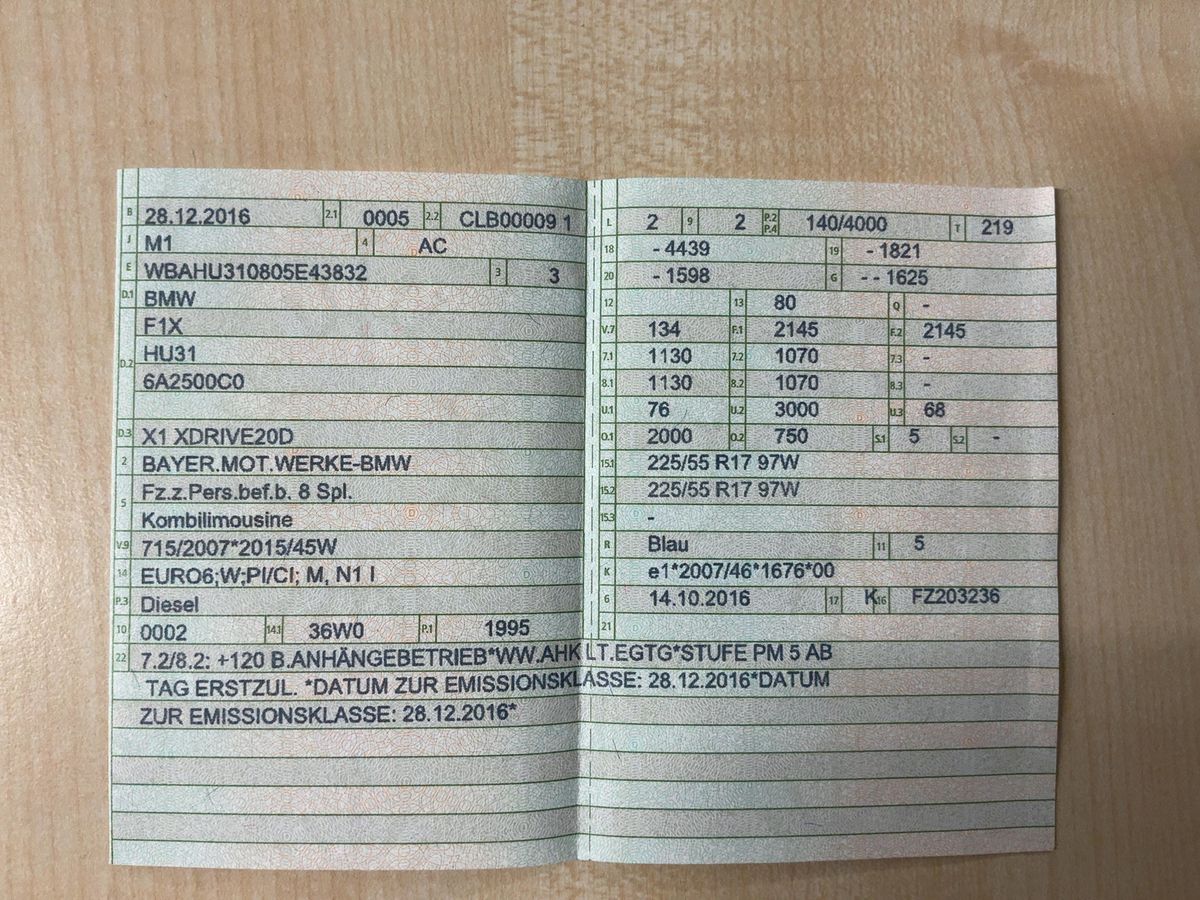 B 28.12.2016 2.1 0005 2.2 CLB00009 1
J M1 4 AC
E WBAHU310805E43832 3 3
D.1 BMW
F1X
D.2 HU31
6A2500C0
D.3 X1 XDRIVE20D
2 BAYER.MOT.WERKE-BMW
Fz.z.Pers.bef.b. 8 Spl.
5 Kombilimousine
V.9 715/2007*2015/45W
14 EURO6;W;PI/CI; M, N1 I
P.3 Diesel
10 0002 14.1 36W0 P.1 1995
L 2 9 2 P.2 P.4 140/4000 T 219
18 - 4439 19 - 1821
20 - 1598 G - - 1625
12 13 80 Q -
V.7 134 F.1 2145 F.2 2145
7.1 1130 7.2 1070 7.3 -
8.1 1130 8.2 1070 8.3 -
U.1 76 U.2 3000 U.3 68
O.1 2000 O.2 750 S.1 5 S.2 -
15.1 225/55 R17 97W
15.2 225/55 R17 97W
15.3 -
R Blau 11 5
K e1*2007/46*1676*00
6 14.10.2016 17 K 16 FZ203236
21
22 7.2/8.2: +120 B.ANHÄNGEBETRIEB*WW.AHK LT.EGTG*STUFE PM 5 AB
TAG ERSTZUL. *DATUM ZUR EMISSIONSKLASSE: 28.12.2016*DATUM
ZUR EMISSIONSKLASSE: 28.12.2016*